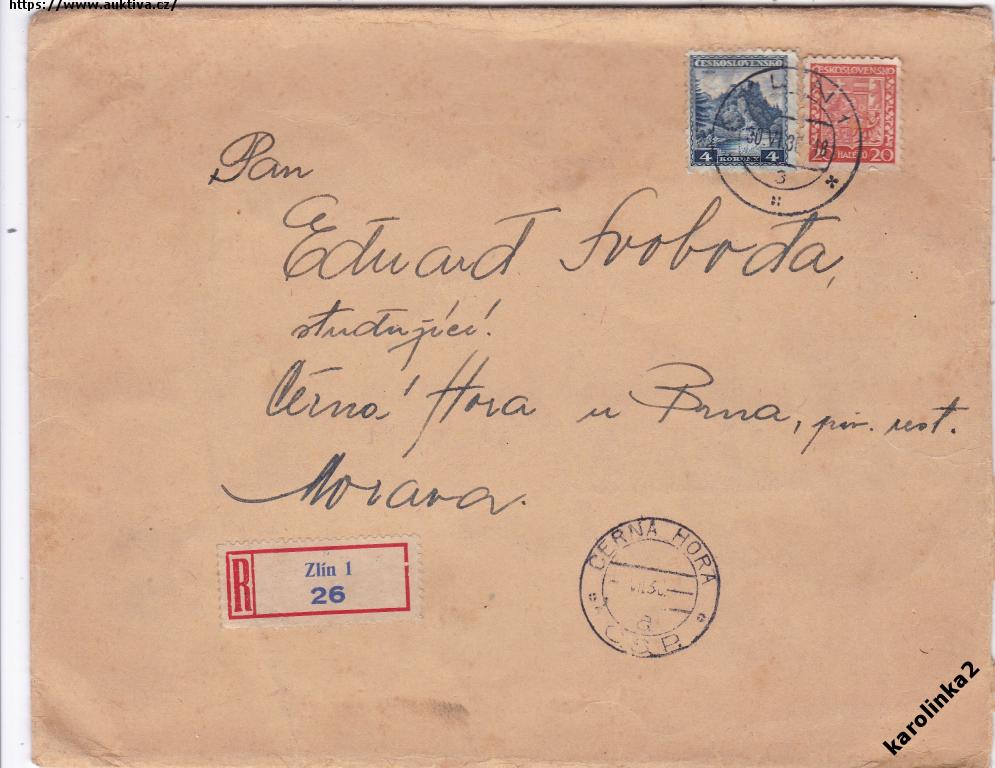 https://www.auktiva.cz/
ČESKOSLOVENSKO
4 KORUNY 4
ČESKOSLOVENSKO
20 HALÉŘŮ 20
3
Pan
Eduard Svoboda,
studující.
Černá Hora u Brna, piv. rest.
Morava.
R
Zlín 1
26
ČERNÁ HORA
a
Č.S.R.
karolinka2